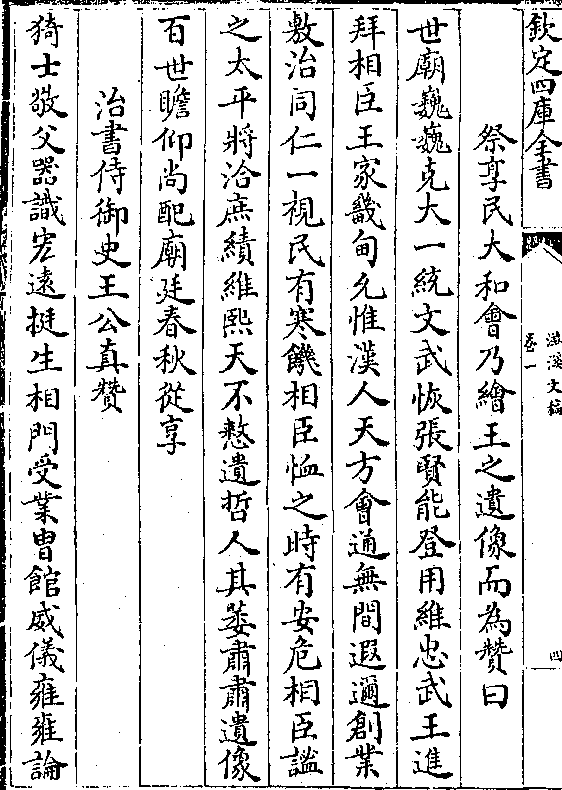 欽定四庫全書
滋溪文稿
卷一
四
祭享民大和會乃繪王之遺像而為贊曰
世廟巍巍克大一統文武恢張賢能登用維忠武王進
拜相臣王家畿甸允惟漢人天方會通無間遐邇創業
敷治同仁一視民有寒饑相臣恤之時有安危相臣謐
之太平將洽庶績維熙天不憗遺哲人其萎肅肅遺像
百世瞻仰尚配廟廷春秋從享
治書侍御史王公真贊
猗士敬父器識宏遠挺生相門受業胄館威儀雍雍論